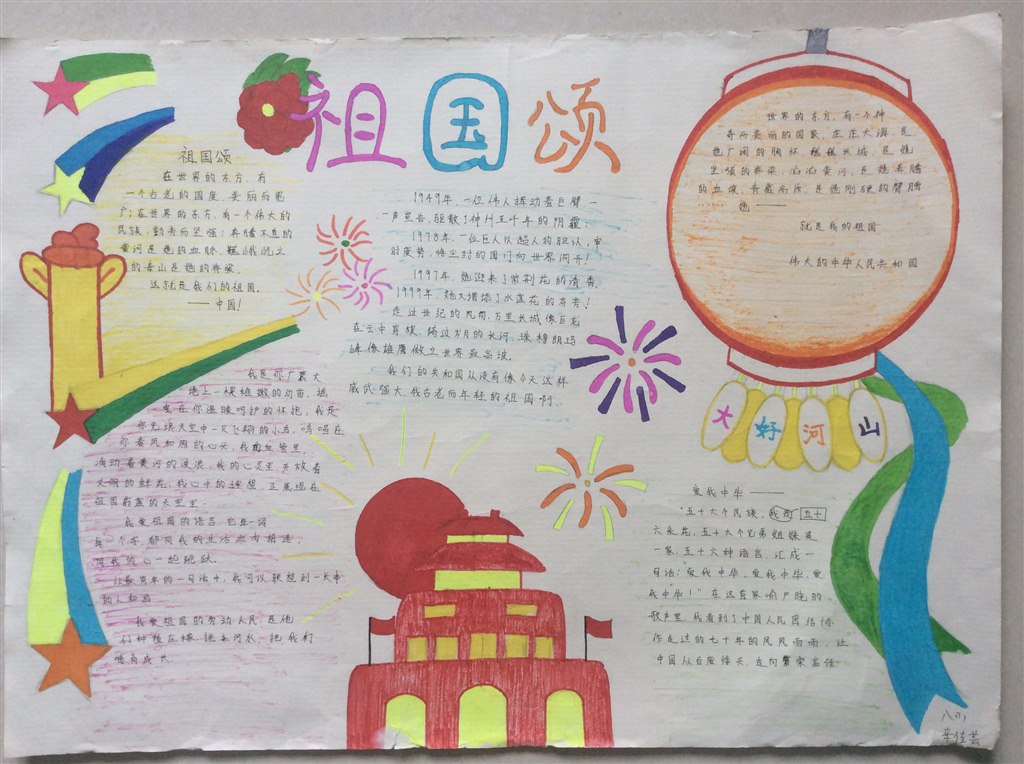 祖国颂
祖国颂
在世界的东方,有
一个古老的国度,美丽而宽
广;在世界的东方,有一个伟大的
民族,勤劳而坚强;奔腾不息的
黄河是她的血脉,巍峨屹立
的泰山是她的脊梁。
这就是我们的祖国。
——中国!
1949年,一位伟人挥动着巨臂一
声宣告,驱散了神州五千年的阴霾;
1978年,一位巨人以超人的胆识,审
时度势,将尘封的国门向世界洞开!
1997年,她迎来了紫荆花的清香,
1999年,她又增添了水莲花的芳香!
走过世纪的风雨,万里长城像巨龙
在云中穿梭,跨过岁月的长河,珠穆朗玛
峰,像雄鹰傲立世界最高坡。
我们的共和国从没有像今天这样
威武强大,我古老而年轻的祖国啊。
世界的东方,有一个神
奇而美丽的国家,庄庄大海,是
她广阔的胸怀,巍巍长城,是她
坚强的脊梁,滔滔黄河,是她奔腾
的血液,青藏高原,是她刚硬的臂膀
……她——
就是我的祖国
伟大的中华人民共和国
大好河山
我是你广袤大
地上一棵稚嫩的幼苗,摇
曳在你温暖呵护的怀抱,我是
你无垠天空中一只飞翔的小鸟,鸣唱在
你春风和煦的心头,我的血管里,
涌动着黄河的波浪,我的心灵里,开放着
文明的鲜花,我心中的理想,正展现在
祖国蔚蓝的天空里
我爱祖国的语言,它每一词
每一个字,都同我的生活血肉相连,
同我的心一起跳跃。
从最简单的一句话中,我可以联想到一长串
的人和画
我爱祖国的劳动人民,是他
们种植庄稼,挑来河水,把我们
哺育成长
爱我中华———
“五十六个民族,
六朵花,五十六个兄弟姐妹是
一家,五十六种语言,汇成一
句话:爱我中华,爱我中华,爱
我中华!”在这首家喻户晓的
歌声里,我看到了中国人民团结协
作走过的七十年的风风雨雨,让
中国从百废待兴,走向繁荣富强